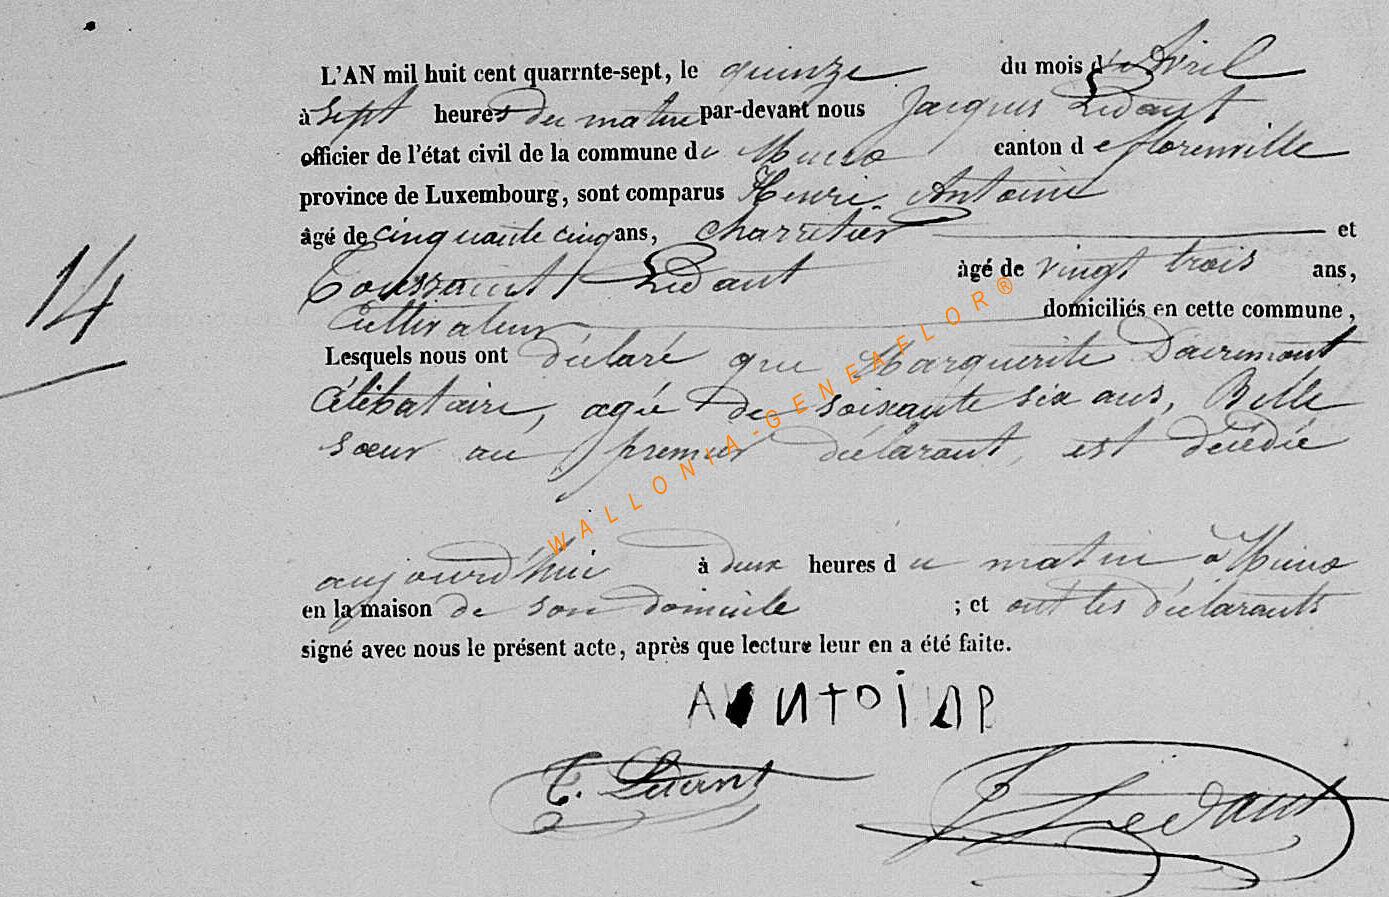 L'AN mil huit cent quarrnte-sept, le quinze du mois d'Avril
à sept heures du matin par-devant nous Jacques Lédant
officier de l'état civil de la commune de Muno canton de florenville
province de Luxembourg, sont comparus Henri Antoine
âgé de cinquante cinq ans, charretier et
14
Toussaint Lédant âgé de vingt trois ans,
Cultivateur domiciliés en cette commune,
Lesquels nous ont déclaré que Marguerite Dauremont
célibataire, agée de soixante six ans, Belle
sœur au premier déclarant, est décédée
WALLONIA-GENEAFLOR®
aujourd'hui à deux heures du matin à Muno
en la maison de son domicile ; et ont les déclarants
signé avec nous le présent acte, après que lecture leur en a été faite.
T. Lédant
J. Lédant